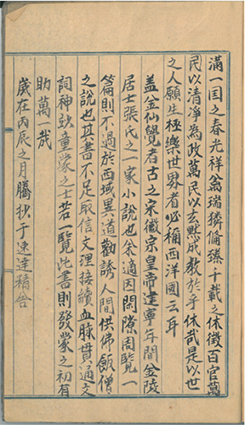 滿一国之春光祥翁瑞獜倫臻十載之休徵百官萬
民以清淨為政萬民以玄默成教於乎休哉是以世
之人願生極樂世界者必稱西洋國云耳
盖金仙覺者古之宋徽宗皇帝建寧年間金陵
居士張氏之一家小說也余適因閑隙周覽一
篇則不過於西域異道勸誘人間供佛飯僧
之說也其書不足取信文理接續血脉貫通文
詞神妙童蒙之士若一覽此書則發蒙之初有
助萬一哉
歲在丙辰之月謄抄于速達精舍